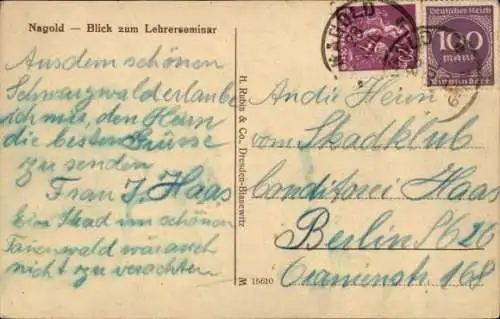 Nagold — Blick zum Lehrerseminar
Aus dem schönen
Schwarzwald erlaube
ich mir, den Herrn
die besten Grüsse
zu senden
Frau J. Haas
Ein Skad im schönen
Tannenwald wär auch
nicht zu verachten
H. Rubin & Co., Dresden-Blasewitz
M 15610
NAGOLD
Deutsches Reich
100
Mark
An die Herrn
vom Skadklub
Conditorei Haas
Berlin S 626
Oranienstr. 168